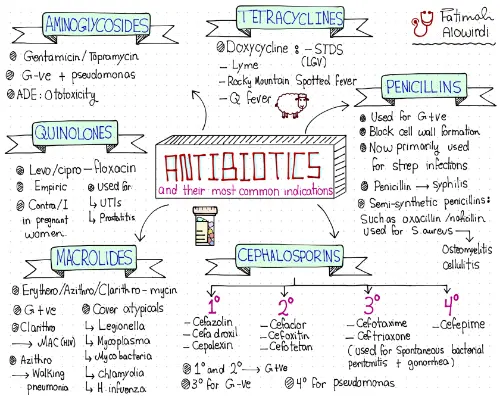 AMINOGLYCOSIDES
Gentamicin/Topramycin
G-ve + pseudomonas
ADE: Ototoxicity
TETRACYCLINES
Doxycycline: – STDS
(LGV)
– Lyme
– Rocky Mountain Spotted fever
– Q fever
Fatimah
Alowirdi
PENICILLINS
Used for G+ve
Block cell wall formation
Now primarily used
for strep infections
Penicillin → syphilis
Semi-synthetic penicillins:
Such as oxacillin/nafcillin
used for S.aureus →
Osteomyelitis
Cellulitis
QUINOLONES
Levo/cipro – floxacin
Empiric
Contra/I
in pregnant
women
Used for
↳ UTIs
↳ Prostatitis
ANTIBIOTICS
and their most common indications
MACROLIDES
Erythero/Azithro/Clarithro-mycin
G+ve
Clarithro
→ MAC (HIV)
Azithro
→ Walking
pneumonia
Cover atypicals
↳ Legonella
↳ Mycoplasma
↳ Mycobacteria
↳ chlamydia
↳ H-influenza
CEPHALOSPORINS
1°
– Cefazolin
– Cefadroxil
– Cepalexin
2°
– Cefaclor
– Cefoxitin
– Cefotetan
3°
– Cefotaxime
– Ceftriaxone
(used for Spontaneous bacterial
peritonitis + gonorrhea)
4°
– Cefepime
1° and 2° → G+ve
3° for G-ve
4° for pseudomonas